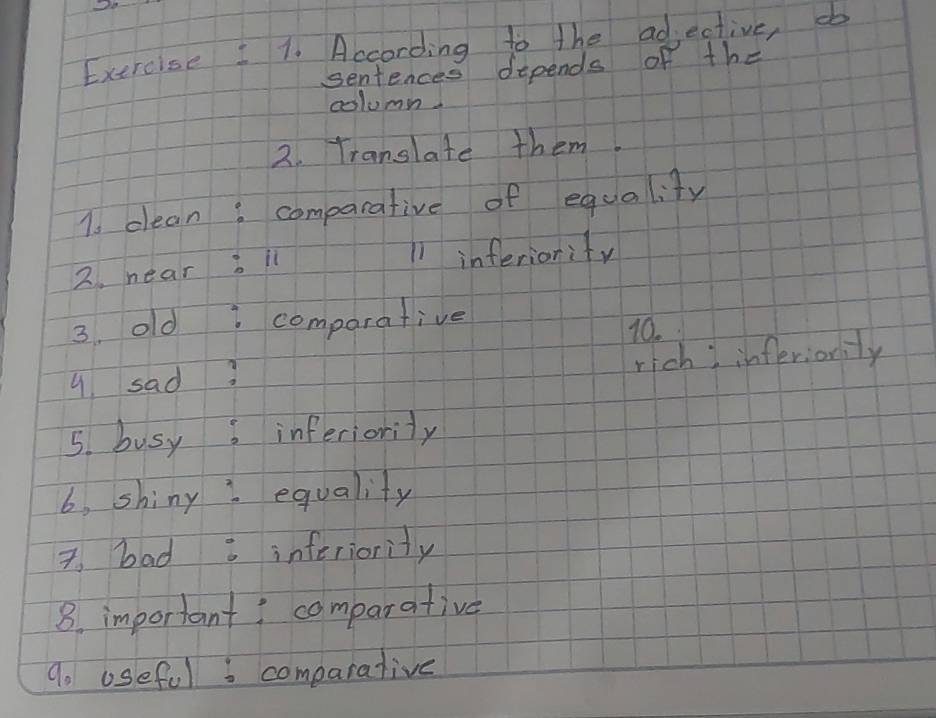 Exercise : 1. According to the adjective, do
sentences depends of the
column.
2. Translate them.
1. clean : comparative of equality
2. near : " " inferiority
3. old : comparative
4. sad :
10.
rich : inferiority
5. busy : inferiority
6. shiny : equality
7. bad : inferiority
8. important : comparative
9. useful : comparative